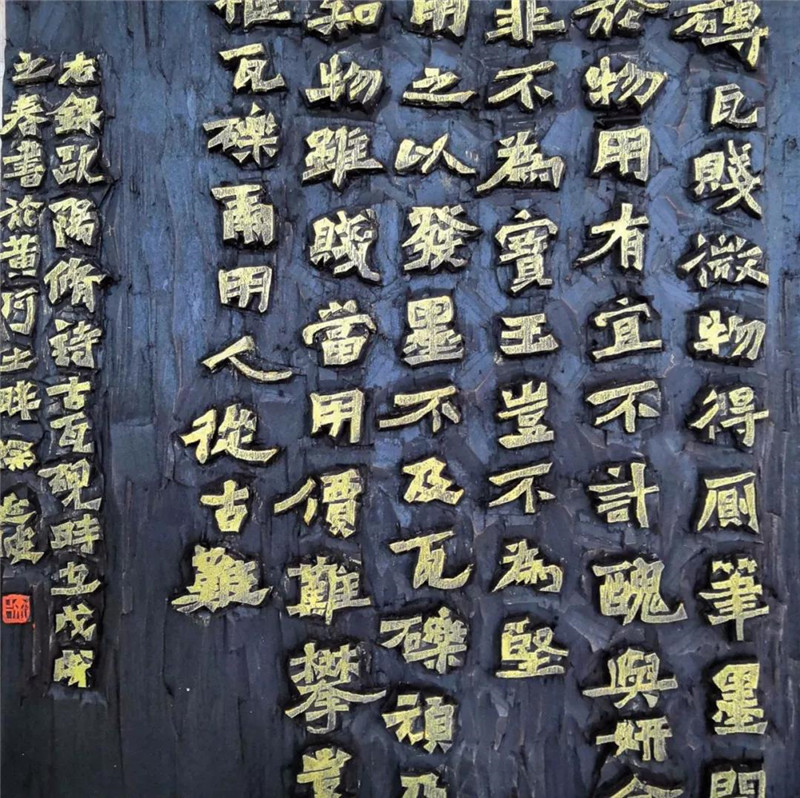 磚瓦賤微物得厠筆墨間
於物用有宜不計醜與妍金
非不為寶玉豈不為堅
用之以發墨不及瓦礫頑乃
知物雖賤當用價難攀豈
惟瓦礫爾用人從古難
右錄歐陽脩詩古瓦硯時在戊戌
之春書於黃河之畔